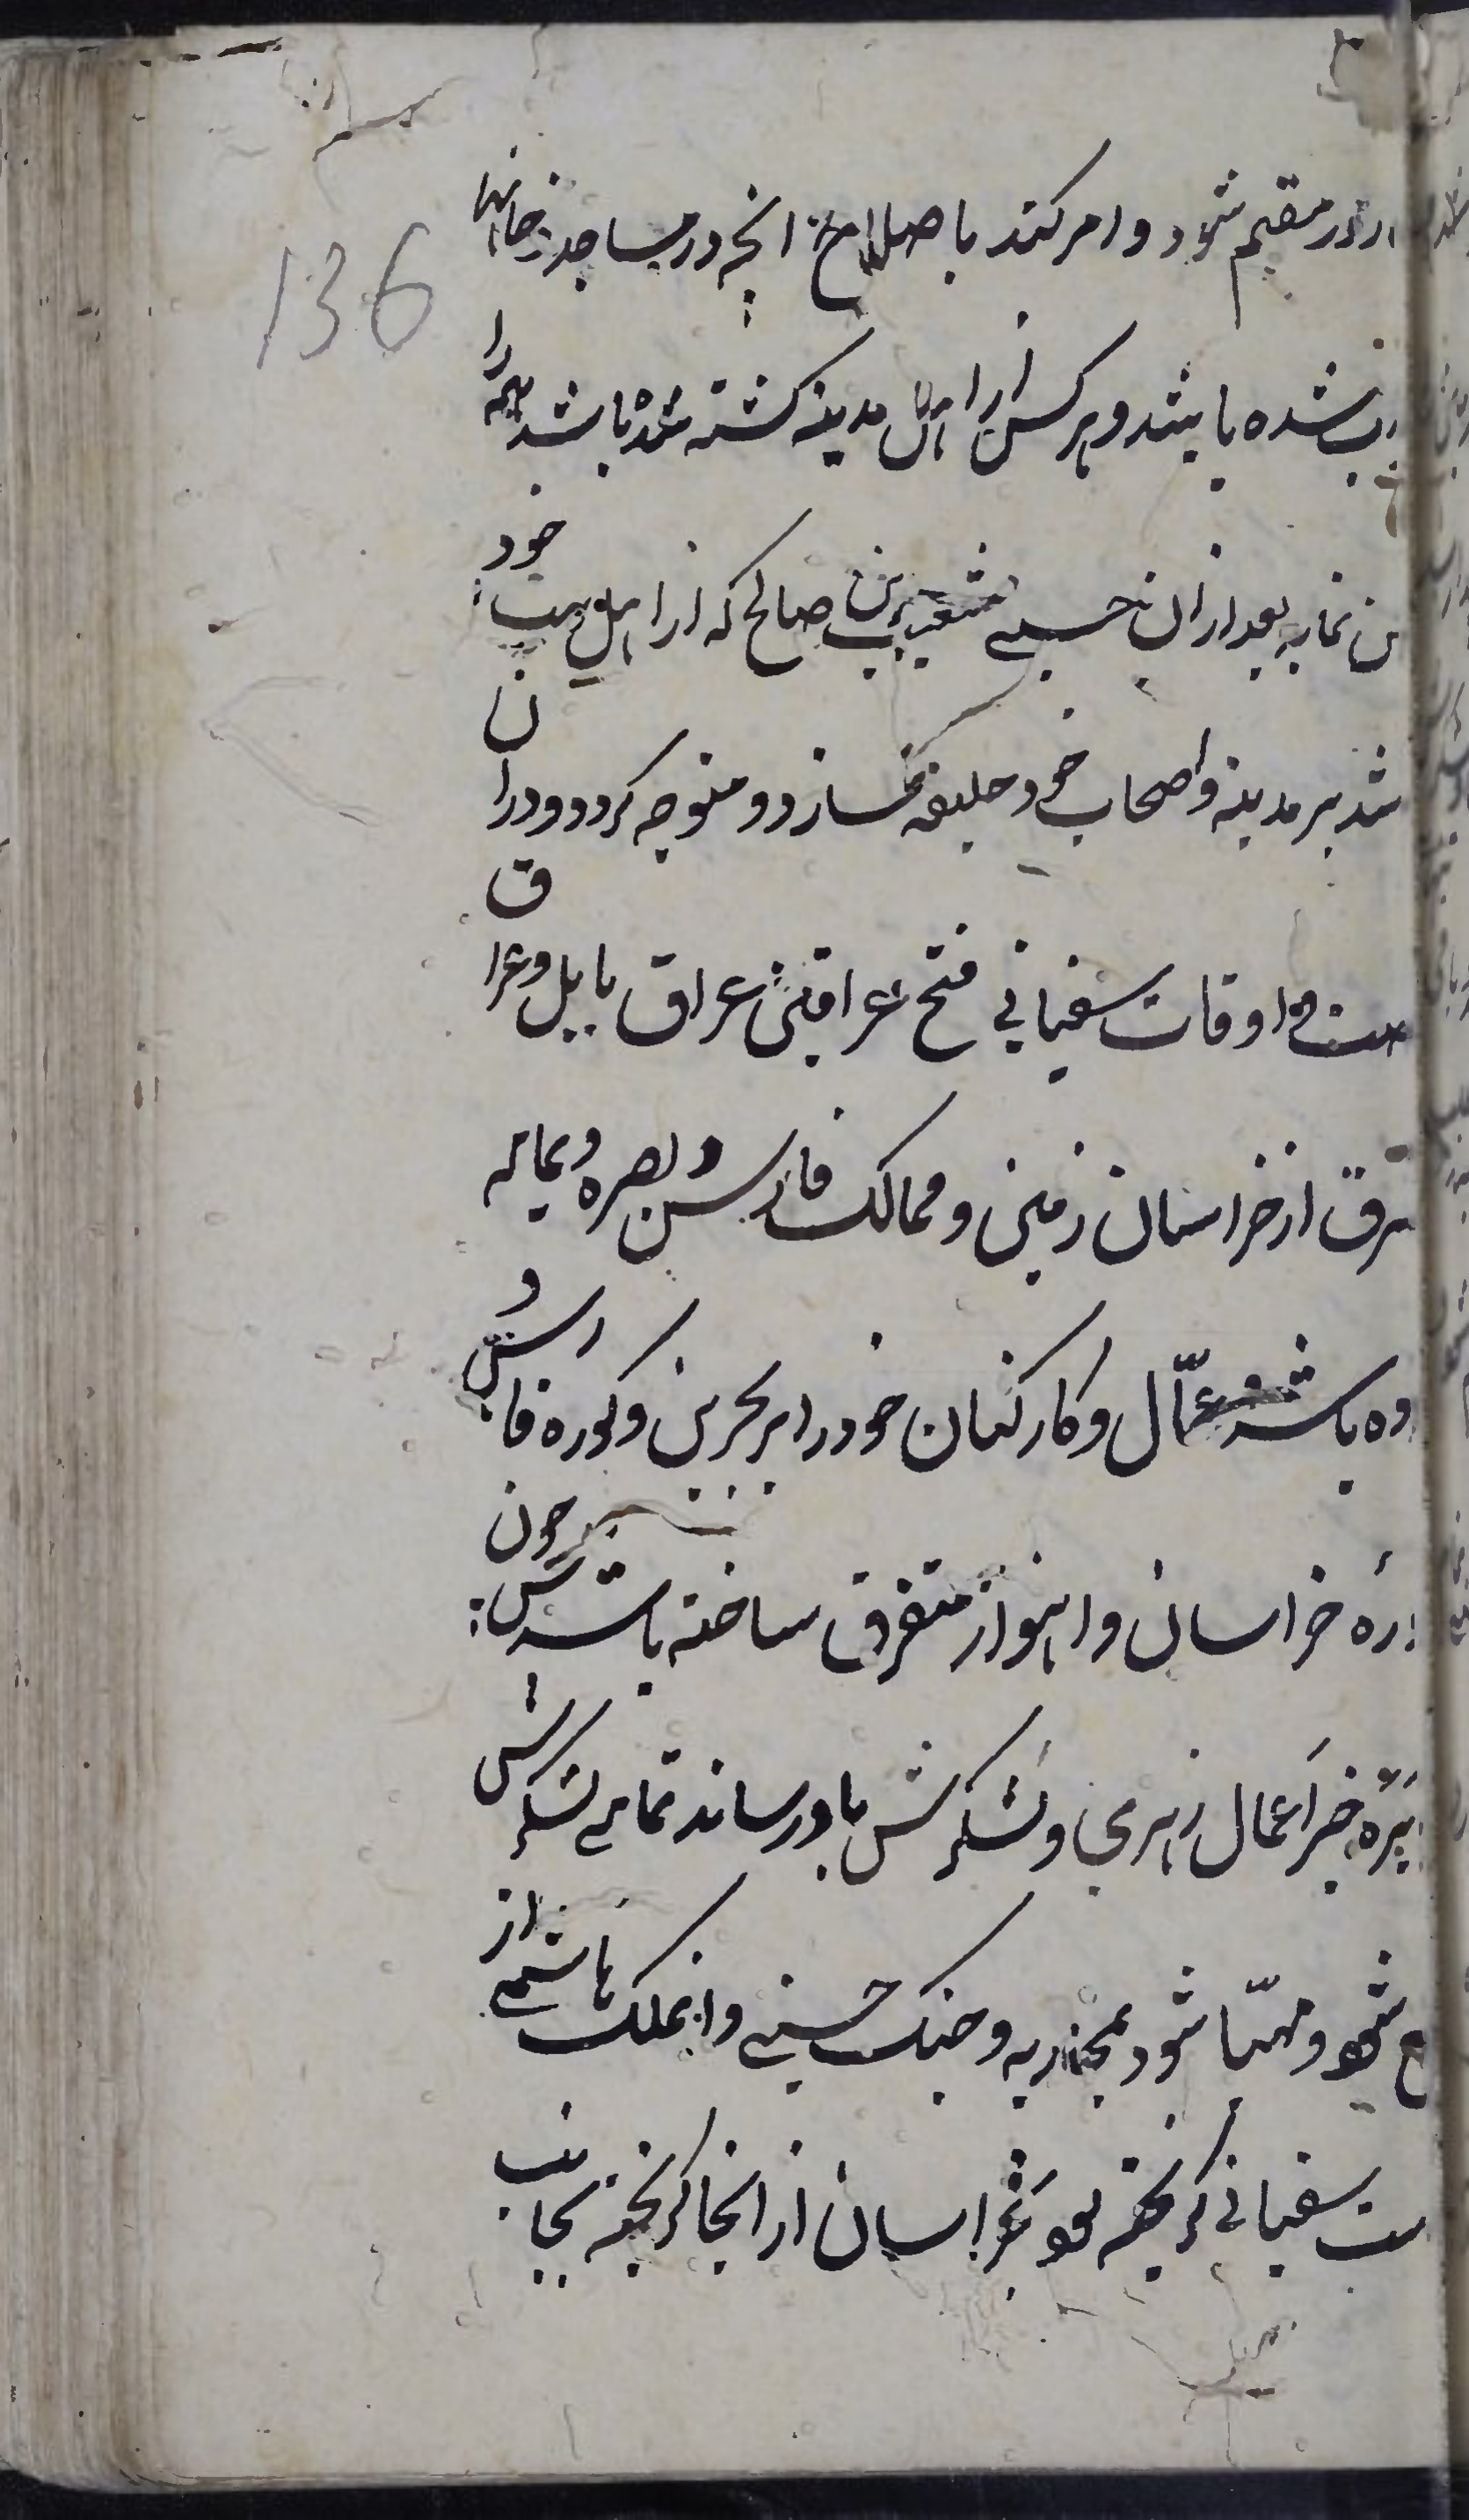 136
مقیم شود و امر کند باصلاح انچه در مساجد و خانها
شده باشد و هر کس را از اهل مدینه کشته شده باشد همه را
نماید بعد از ان حسنی شعیب بن صالح که از اهل بیت خود
شد بر مدینه و اصحاب خود خلیفه سازد و متوجه کردد و دران
اوقات سفیانی فتح عراقین عراق بابل و عراق
شرق از خراسان زمین و ممالک فارس و بصره و یمامه
باشد و عمّال و کارکنان خود را بر بحرین و کوره فارس و
خراسان و اهواز متفرق ساخته باشد پس چون
خبر اعمال زهری و لشکرش باو رساند تمامی لشکرش
شود و مهیّا شود بمحاربه و جنک حسنی و ان ملک هاشمی از
سفیانی کریخته بود بخراسان از انجا کریخته بجانب